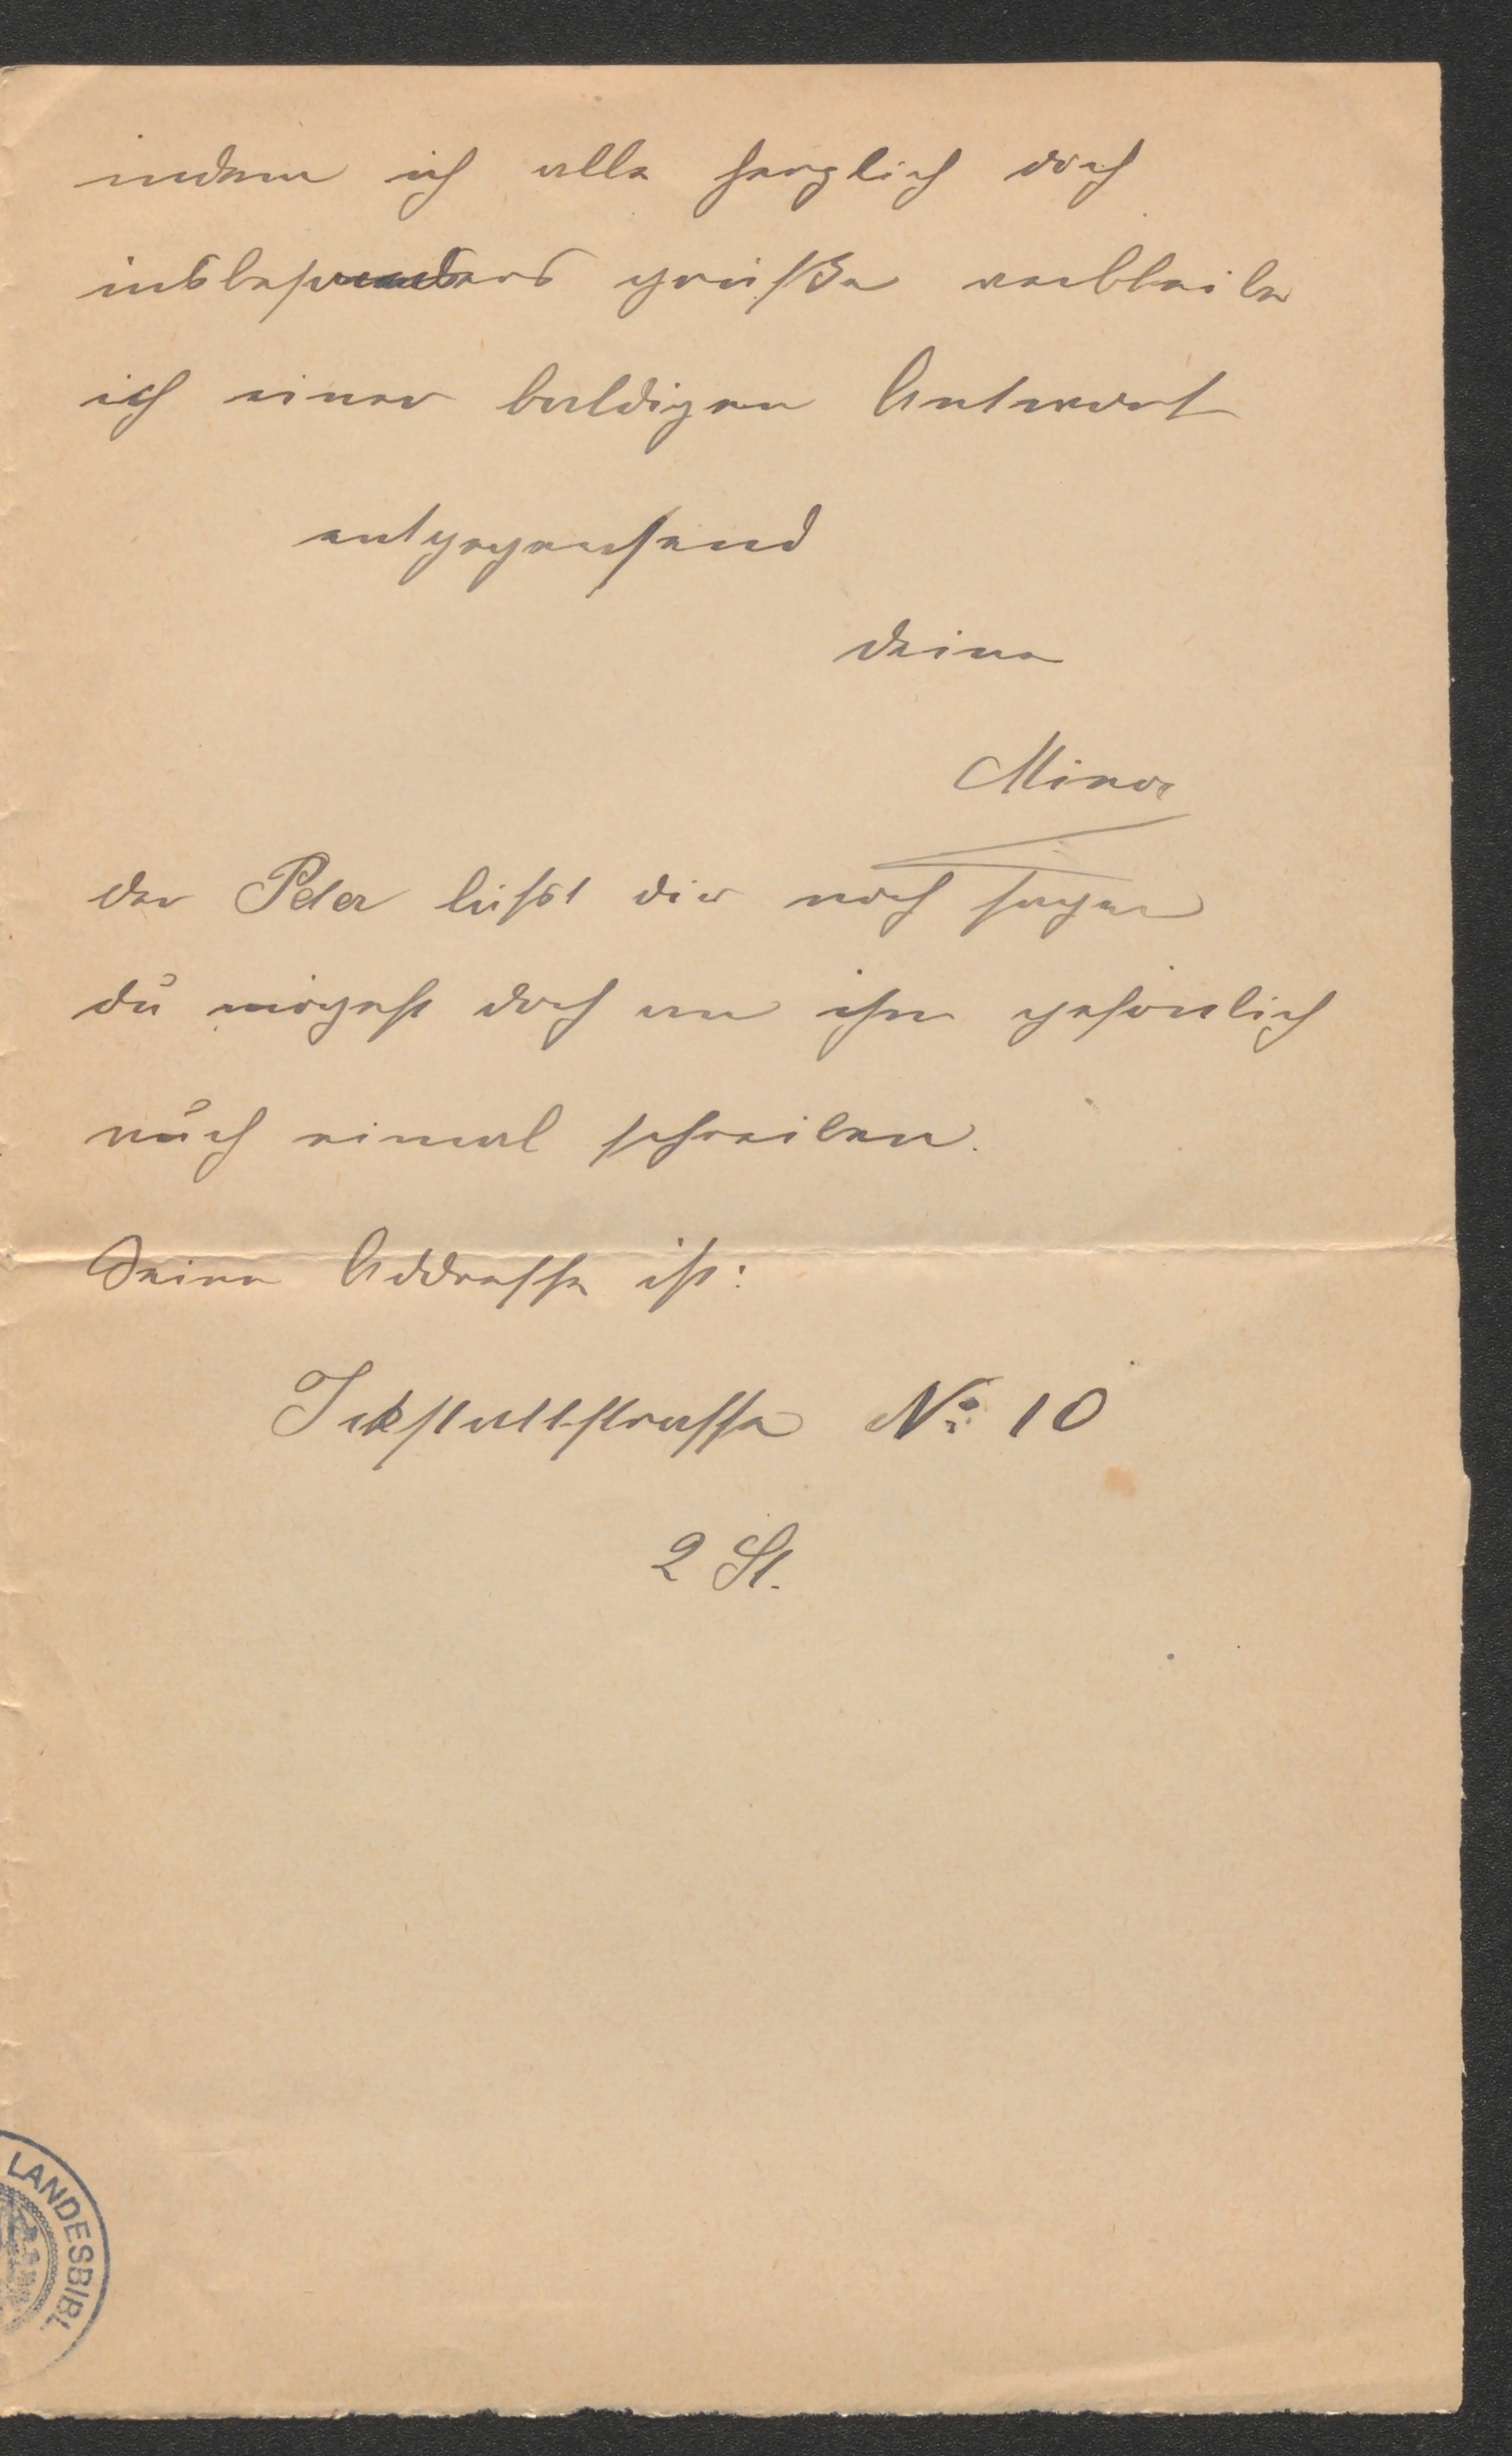 indem ich alle herzlich doch
insbesonders grüße verbleibe
ich einer baldigen Antwort
entgegensend
deine
Mina
der Peter läßt dir noch sagen
du mögest doch an ihn gefönlich
nuch einmal schreiben.
Seine Addresse ist:
Ickstattstrasse No: 10
2 St.
LANDESBIBL